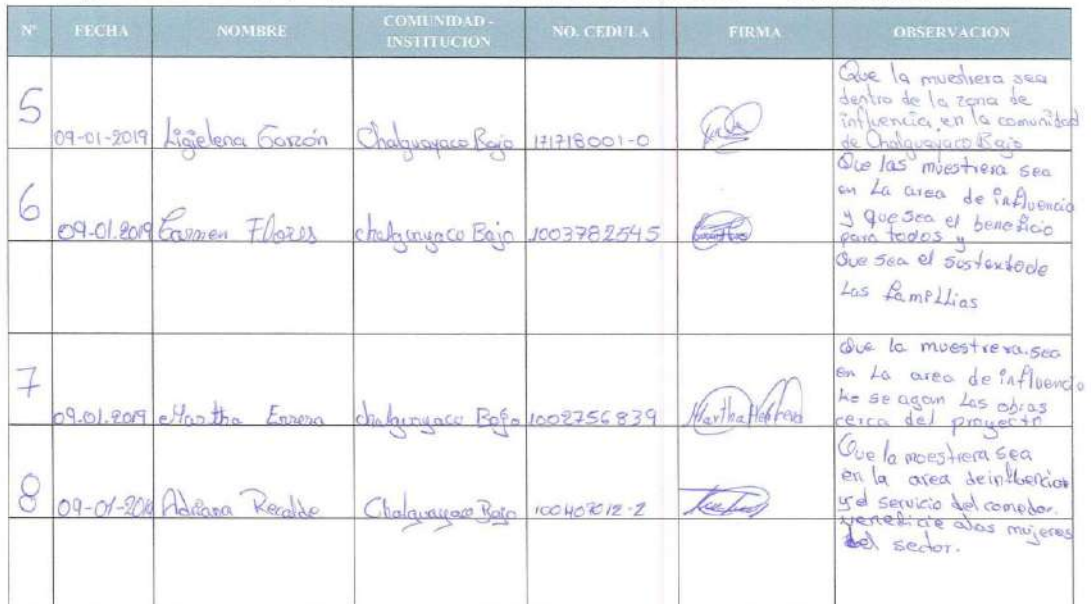 N° FECHA NOMBRE COMUNIDAD - INSTITUCION NO. CEDULA FIRMA OBSERVACION
5 09-01-2019 Ligielena Garzón Chalguayaco Bajo 171718001-0
Que la muestrera sea
dentro de la zona de
influencia, en la comunidad
de Chalguayaco Bajo
6 09-01.2019 Carmen Flores chalguayaco Bajo 1003782545
Que las muestrera sea
en La area de influencia
y que sea el beneficio
para todos y
Que sea el sustextode
Las famillias
7 09.01.2019 Martha Errera chalguayaco Bajo 1002756839 Martha Herrera
Que la muestrera.sea
en La area de influencia
ke se agan Las obras
cerca del proyecto
8 09-01-2019 Adriana Recalde Chalguayaco Bajo
Que la moestrera sea
en la area de influencia
y el servicio del comedor.
veneficie alas mujeres
del sector.